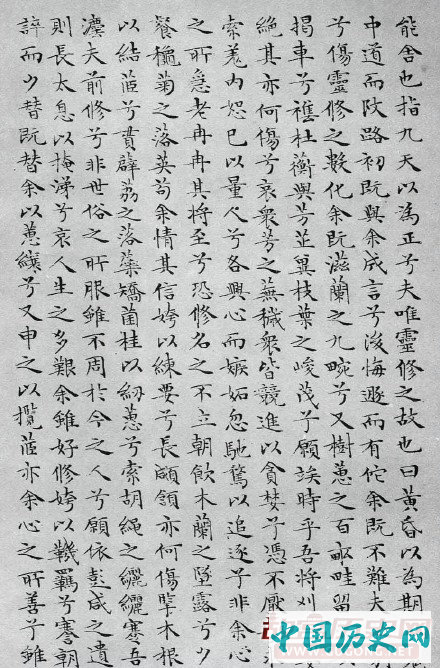 能舍也指九天以為正兮夫唯靈修之故也曰黃昏以為期
中道而改路初既與余成言兮後悔遯而有佗余既不難夫
兮傷靈修之數化余既滋蘭之九畹兮又樹蕙之百畝畦留
揭車兮襍杜蘅與芳芷冀枝葉之峻茂兮願竢時乎吾將刈
絕其亦何傷兮哀眾芳之蕪穢眾皆競進以貪婪兮憑不厭
索羌內恕己以量人兮各興心而嫉妬忽馳騖以追逐兮非余心
之所急老冉冉其將至兮恐修名之不立朝飲木蘭之墜露兮夕
餐穐菊之落英苟余情其信姱以練要兮長顑頷亦何傷擥木根
以結茝兮貫薜荔之落蘂矯菌桂以紉蕙兮索胡繩之纚纚謇吾
灋夫前修兮非世俗之所服雖不周於今之人兮願依彭咸之遺
則長太息以掩涕兮哀人生之多艱余雖好修姱以鞿羈兮謇朝
誶而夕替既替余以蕙纕兮又申之以攬茝亦余心之所善兮雖
中国历史网